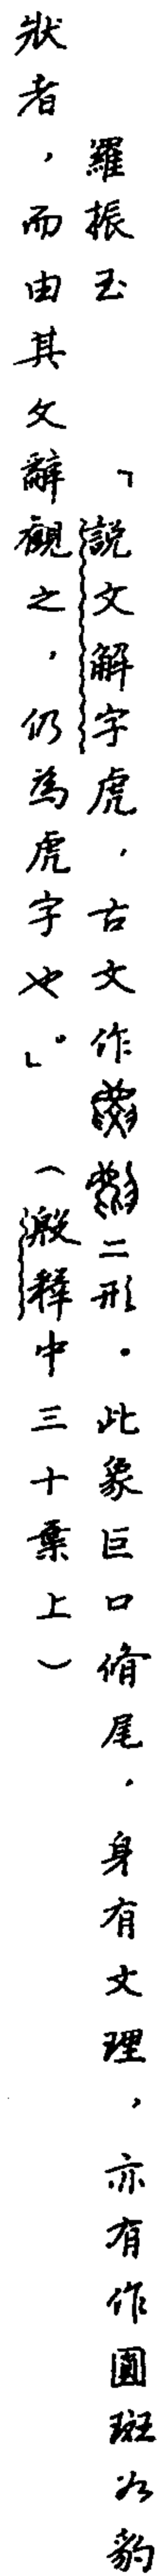 羅振玉　「說文解字虎，古文作二形。此象巨口脩尾，身有文理，亦有作圓斑如豹
狀者，而由其文辭觀之，仍為虎字也。」（澱釋中三十葉上）